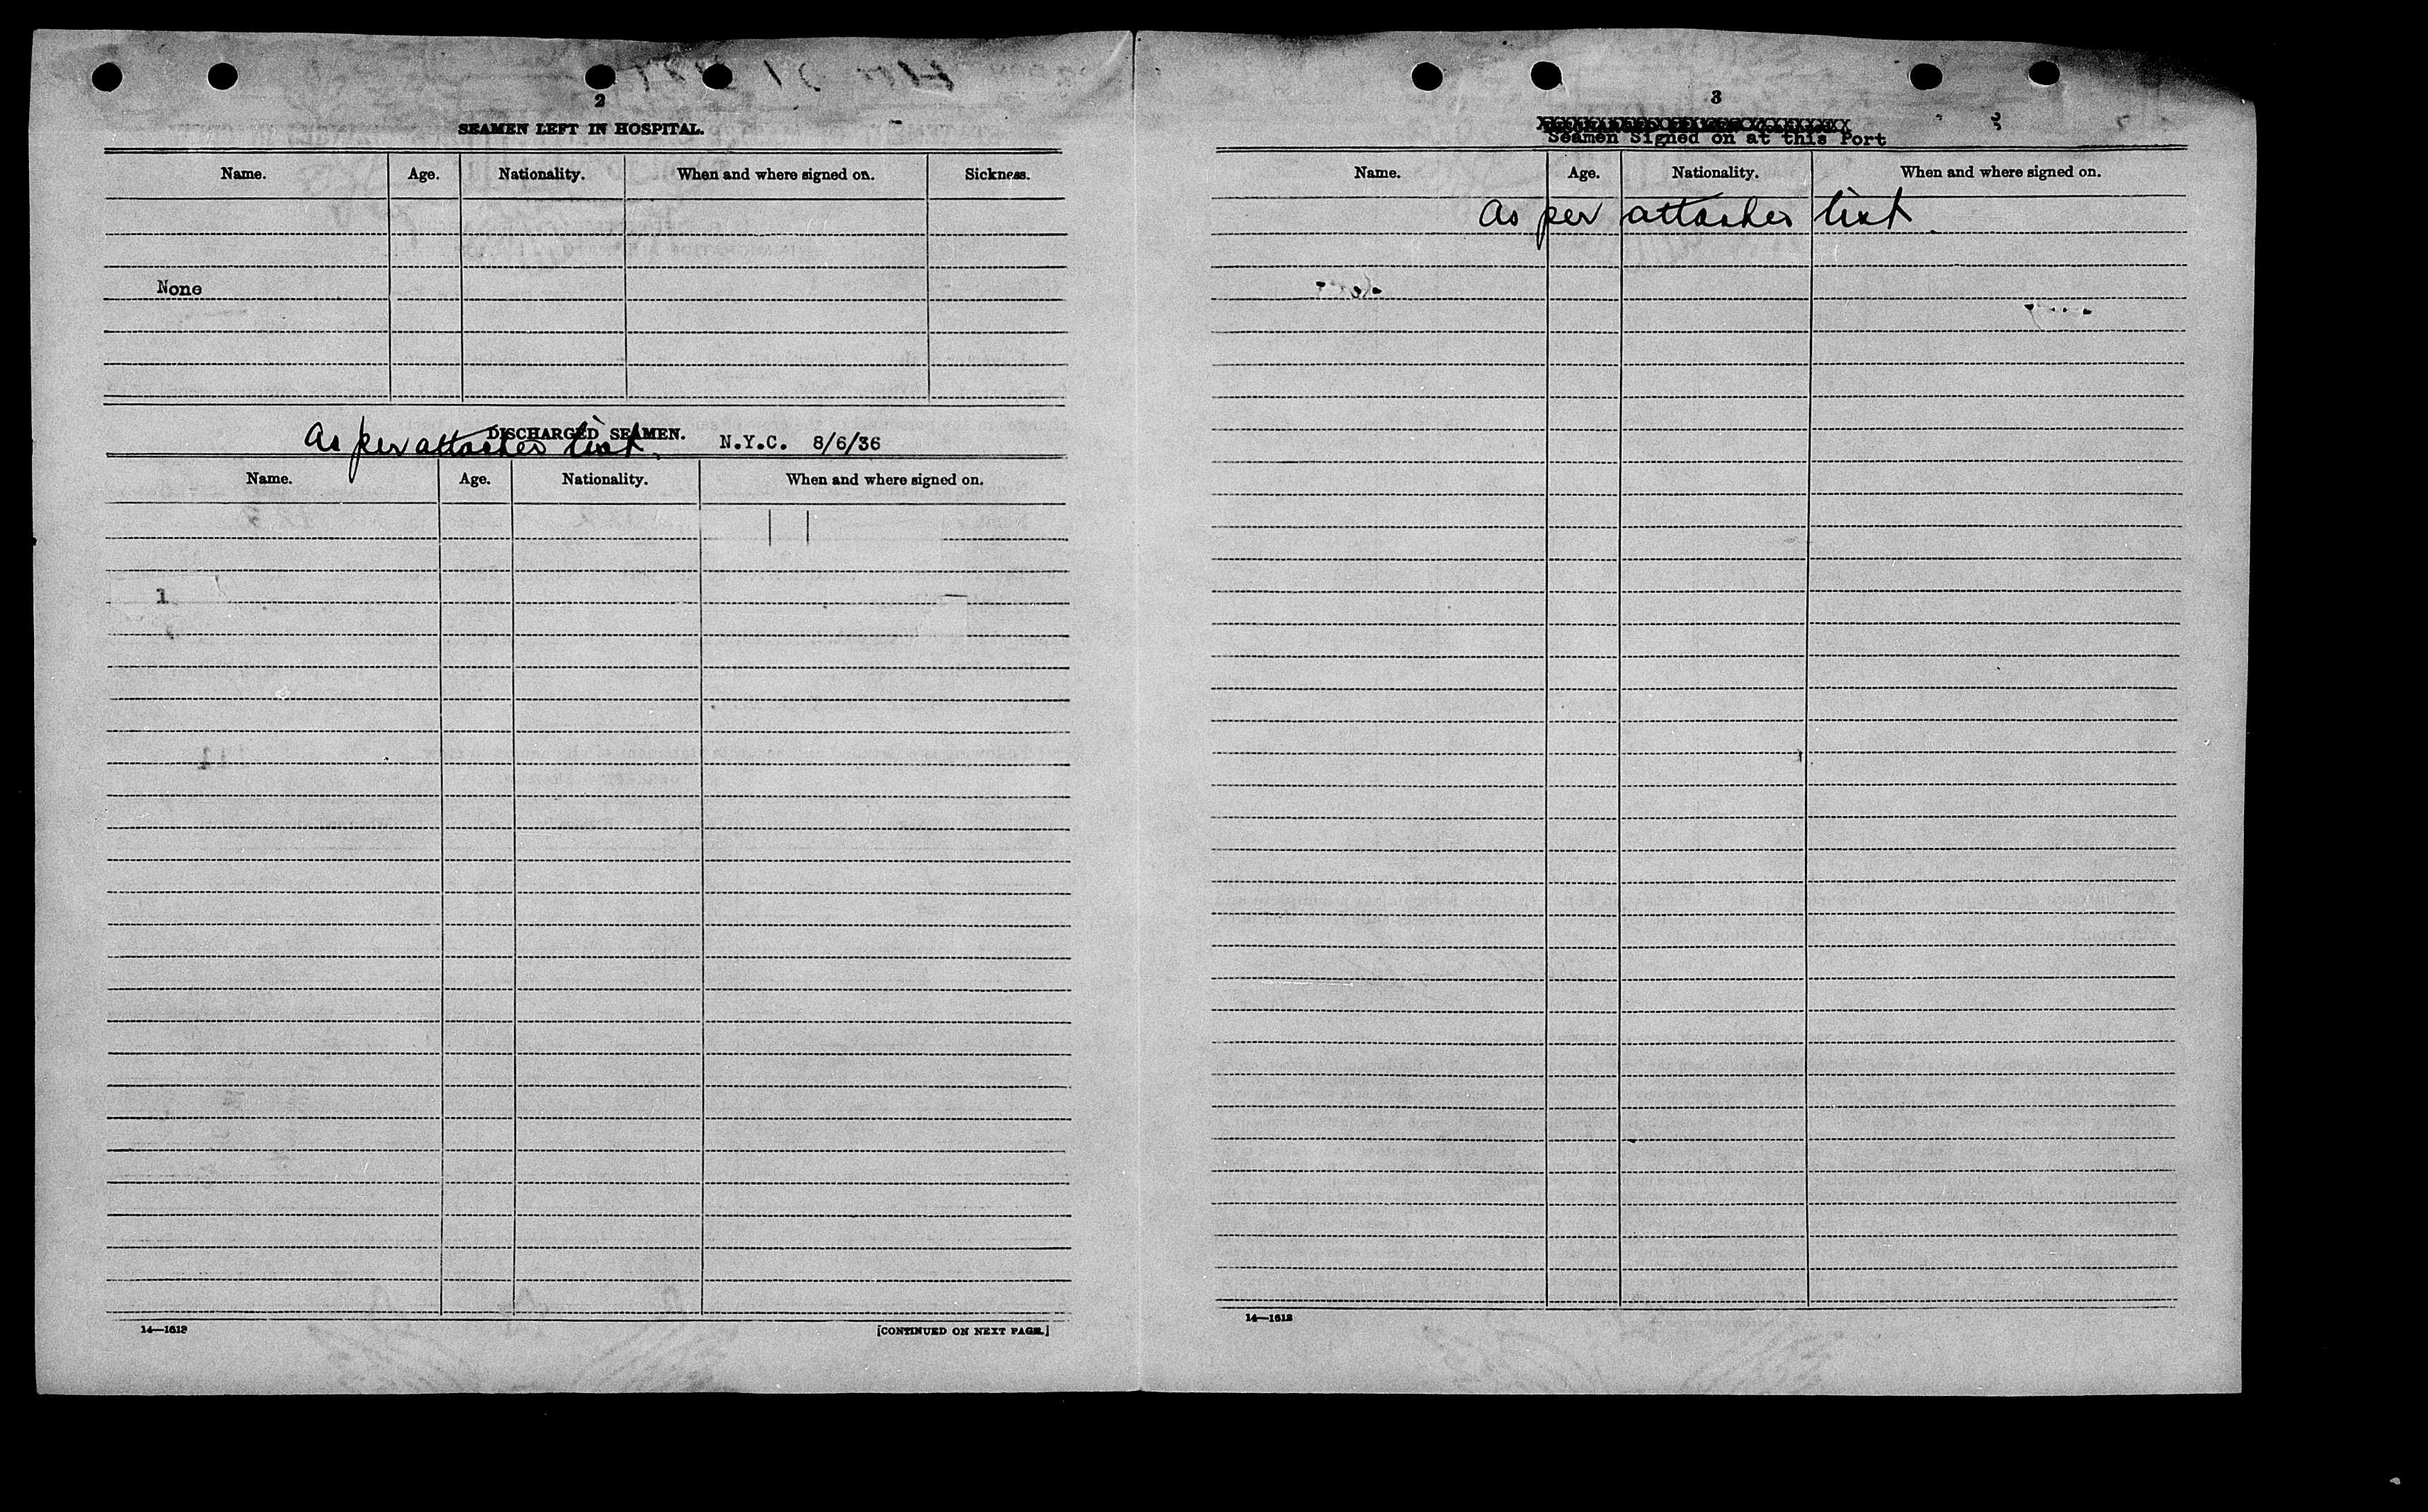 2
SEAMEN LEFT IN HOSPITAL.
Name. Age. Nationality. When and where signed on. Sickness.
None
DISCHARGED SEAMEN. N.Y.C. 8/6/36
As per attached list.
Name. Age. Nationality. When and where signed on.
1
11
14—1613
[CONTINUED ON NEXT PAGE.]
3
Seamen Signed on at this Port
Name. Age. Nationality. When and where signed on.
As per attached list.
14—1613